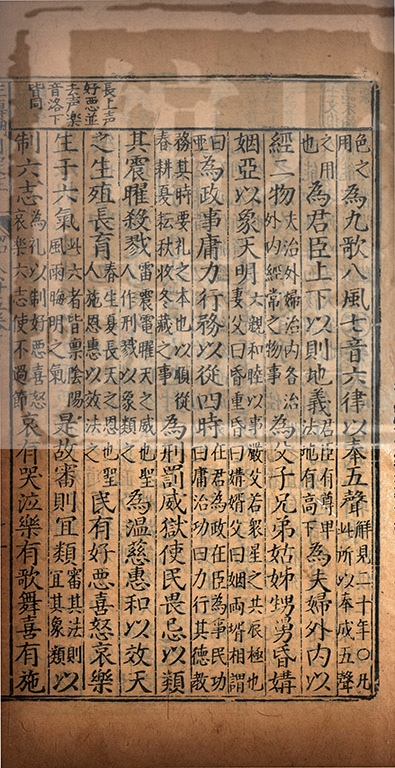 色之用為九歌八風七音六律以奉五聲解見二十年○凡此所以奉成五聲
之用也為君臣上下以則地義君臣有尊卑法地有高下為夫婦外内以
經二物夫治外婦治内各治外内經常之物事為父子兄弟姑姊甥舅昏媾
姻亞以象天明六親和睦以事嚴父若衆星之共辰極也妻父曰昏重昏曰媾婿父曰姻兩壻相謂
曰亞為政事庸力行務以從四時在君為政在臣為事民功曰庸治功曰力行其德教
務其時要礼之本也以順從春耕夏耘秋收冬藏之事為刑罰威獄使民畏忌以類
其震曜殺戮雷震電曜天之威也聖人作刑戮以象類之為溫慈惠和以效天
之生殖長育春生夏長天之恩也聖人施恩惠以效法之民有好惡喜怒哀樂
長上声
好惡並
去声樂
音洛下
皆同
生于六氣此六者皆稟陰陽風雨晦明之氣是故審則宜類審其法則宜其象類以
制六志為礼以制好惡喜怒哀樂六志使不過節哀有哭泣樂有歌舞喜有施